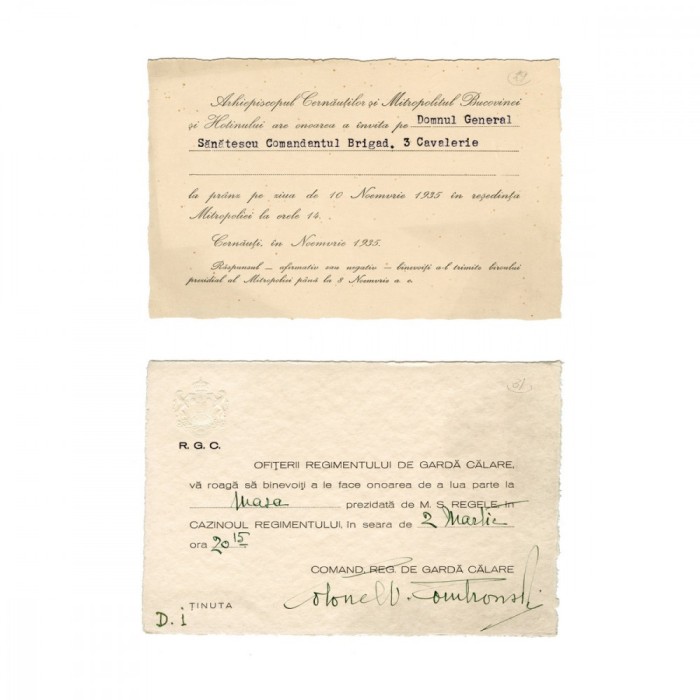 Arhiepiscopul Cernăuților și Mitropolitul Bucovinei
și Hotinului are onoarea a invita pe Domnul General
Sănătescu Comandantul Brigad. 3 Cavalerie
la prânz pe ziua de 10 Noemvrie 1935 în reședința
Mitropoliei la orele 14.
Cernăuți, în Noemvrie 1935.
Răspunsul – afirmativ sau negativ – binevoiți a-l trimite biroului
prezidial al Mitropoliei până la 8 Noemvrie a. c.
R. G. C.
OFIȚERII REGIMENTULUI DE GARDĂ CĂLARE,
vă roagă să binevoiți a le face onoarea de a lua parte la
masa prezidată de M. S. REGELE, în
CAZINOUL REGIMENTULUI, în seara de 2 Martie
ora 20 15
COMAND. REG. DE GARDĂ CĂLARE
Colonel
ȚINUTA
D. i